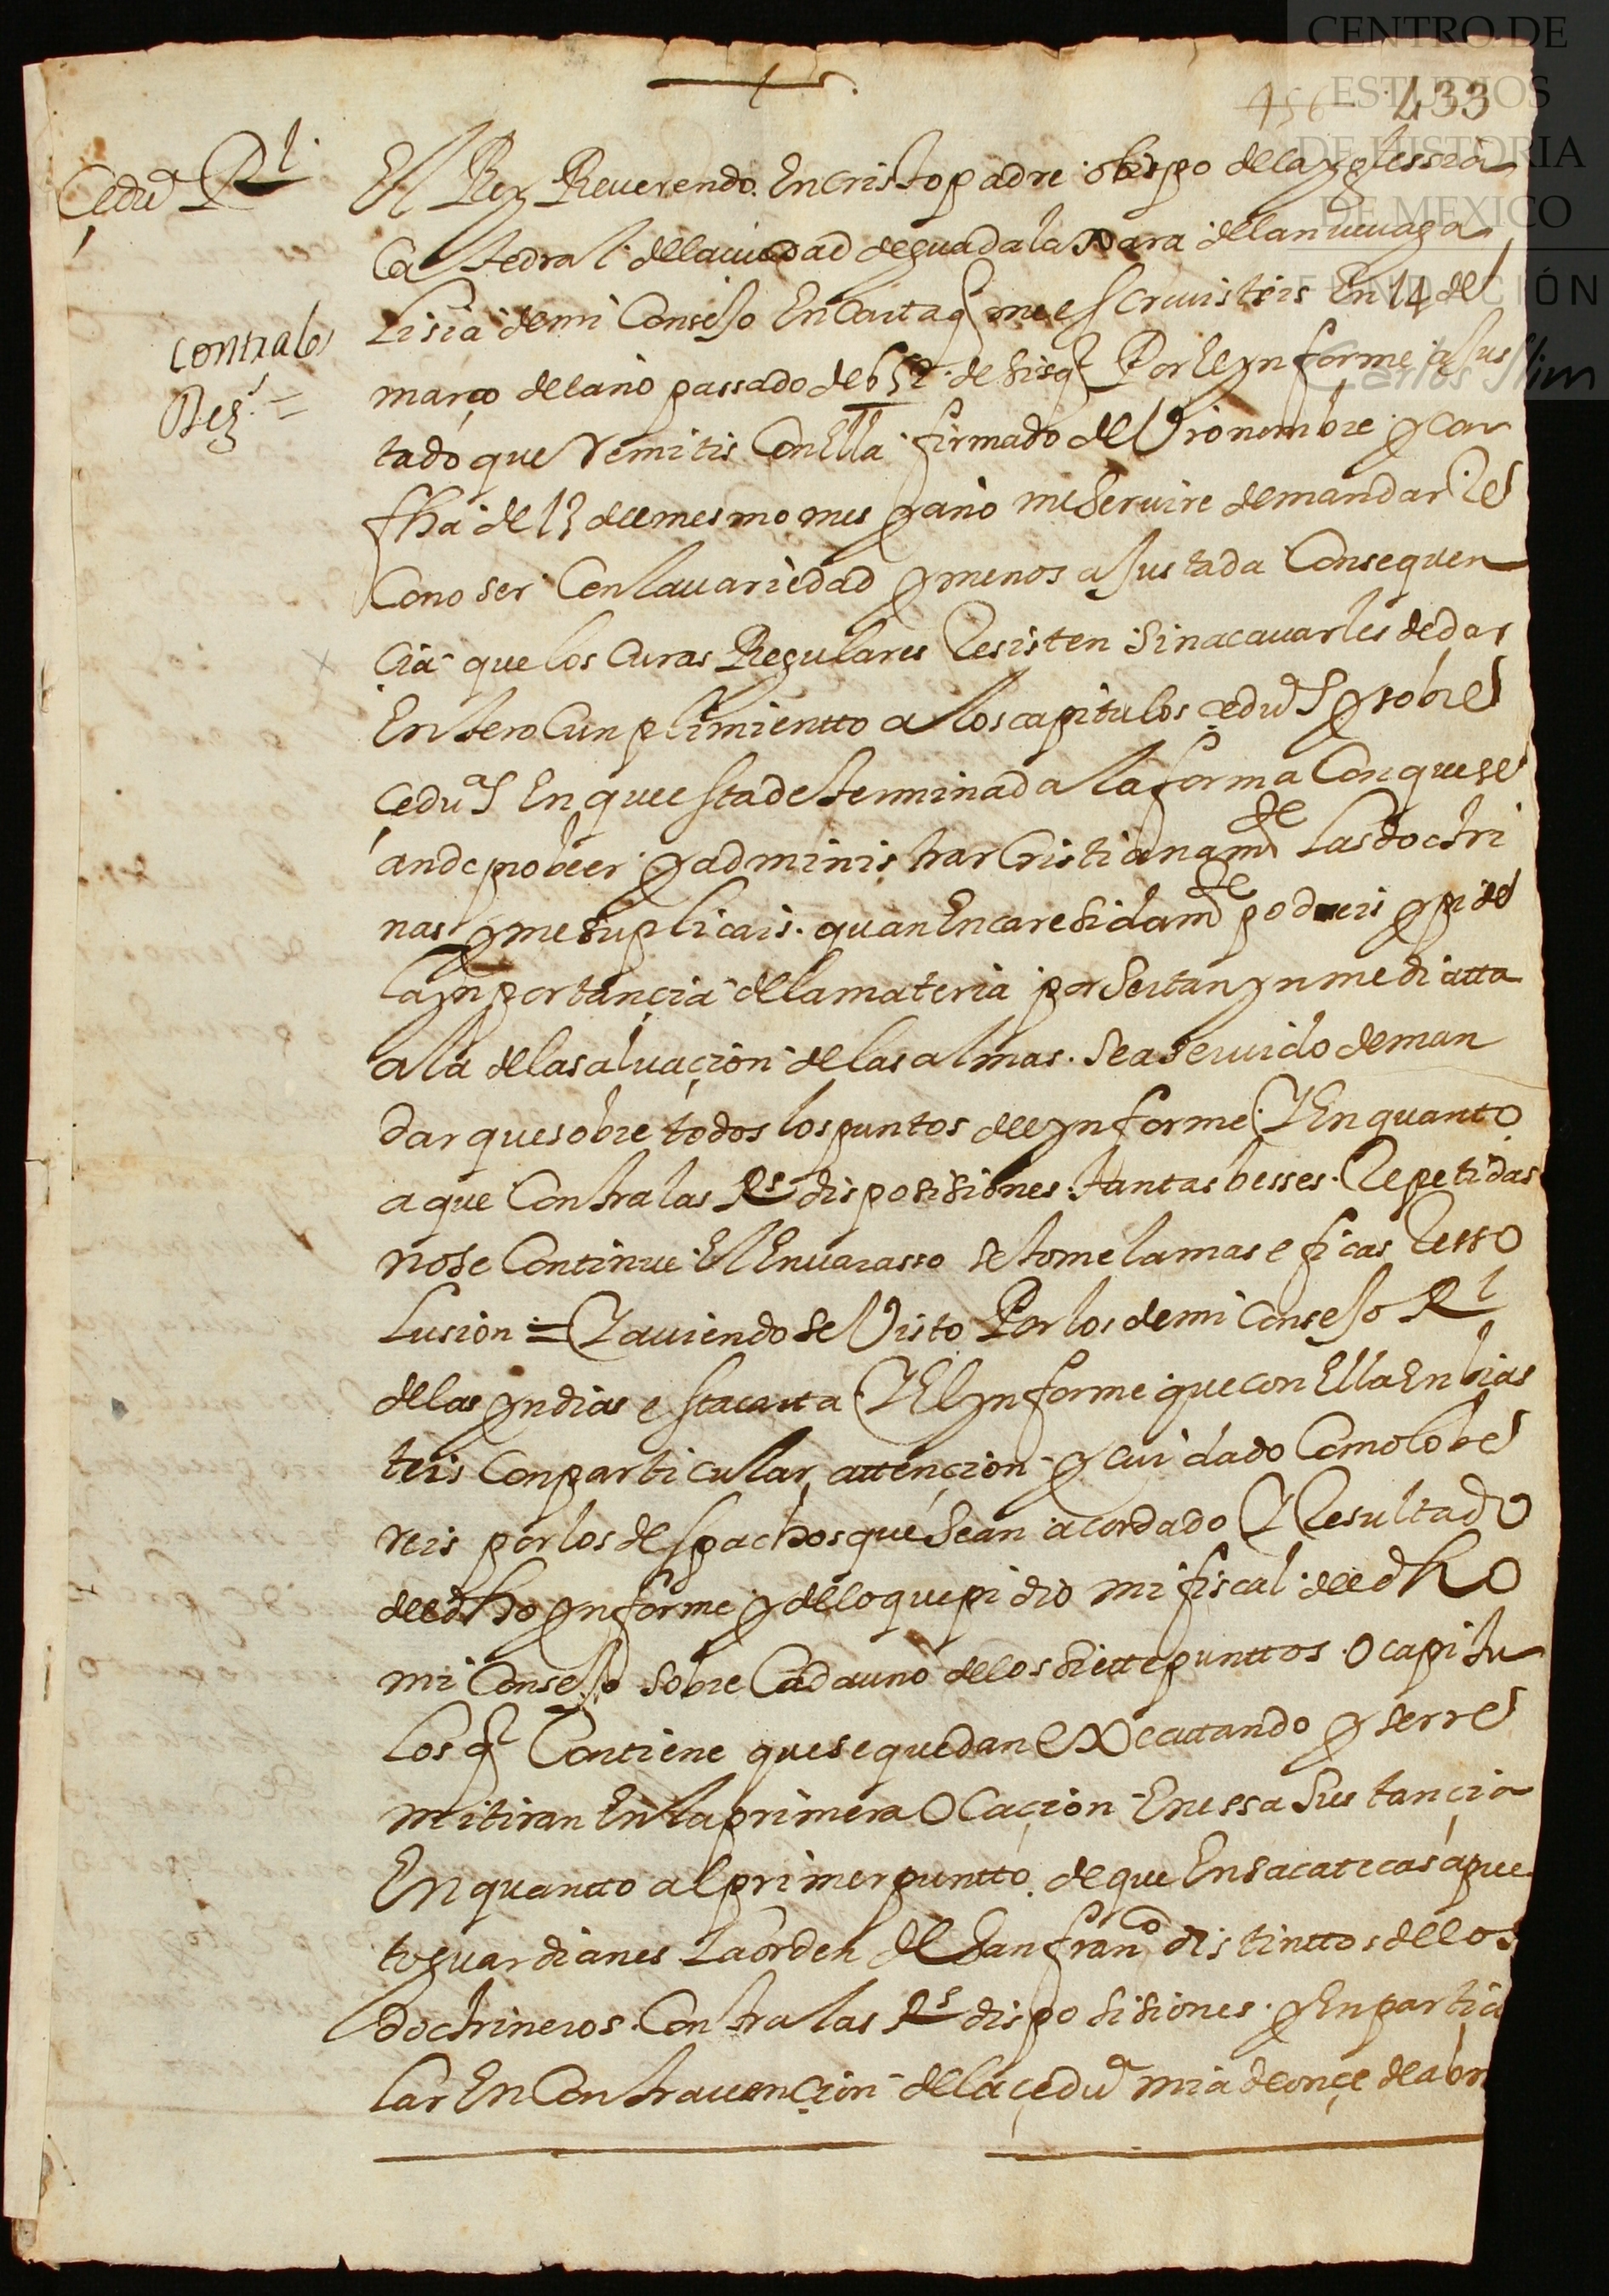 CENTRO DE
ESTUDIOS
DE HISTORIA
DE MEXICO
FUNDACIÓN
Carlos Slim
456 433
Cedua Rl
contra los
Reg.s =
El Rey Reuerendo En cristo padre obispo de la yglessia
Catedral de la ciudad de guadalaxara de la nueua ga
lisia de mi Consejo En Carta q me escriuisteis En 14 de
março del año passado de 652 desis q Por el ynforme ajus
tado que remitis Con Ella firmado de Vro nombre y con
fha de 13 del mesmo mes y año me seruire de mandar Re
Conoser Con la uariedad y menos ajustada Consequen
cia que los Curas Regulares Resisten sin acauarles de dar
Entero Cunplimientto a los capitulos cedus y sobre
Ceduas En que esta determinada la forma Con que se
an de probeer y administrar Cristianamde Las doctri
nas y me suplicais quan Encaresidamde podeis y pide
la ynportançia de la materia por ser tan ynmediatta
a la de la saluaçion de las almas. Sea seruido de man
dar que sobre todos los puntos del ynforme Y En quanto
a que Contra las Rs disposisiones tantas besses Repetidas
no se Continue El Enuarasso se tome la mas eficas Resso
lusion = Y auiendose Visto Por los de mi Consejo Rl
de las yndias esta carta Y El ynforme que con Ella Enbias
teis Con particular attençion y cuidado Como lo be
reis por los despachos que se an acordado Y Resultado
del dho ynforme y de lo que pidio mi fiscal del dho
mi Consejo sobre Cada uno de los siette punttos o capitu
los q Contiene que se quedan eXecutando y se rre
mitiran En la primera Ocaçion En essa sustançia
En quantto al primer puntto de que En sacatecas a pues
to guardianes La orden de San franco distinttos de los
doctrineros Contra las Rs disposisiones y En particu
lar En Contrauençion de la çedua mia de onçe de abri